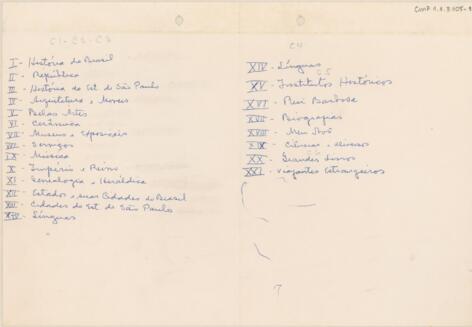 C1-C2-C3
I - História do Brasil
II - República
III - História do Est. de São Paulo
IV - Arquitetura e Moveis
V - Bellas Artes
VI - Cerâmica
VII - Museus e Exposições
VIII - Serviços
IX - Musica
X - Império e Reino
XI - Genealogia e Heráldica
XII - Estados e suas Cidades do Brasil
XIII - Cidades do Est. de São Paulo
XIV - Línguas
C4
XIV - Línguas
C5
XV - Institutos Históricos
XVI - Rui Barbosa
XVII - Biografias
XVIII -
XIX - Ciências e diversos
XX - Grandes livros
XXI - Viajantes Estrangeiros